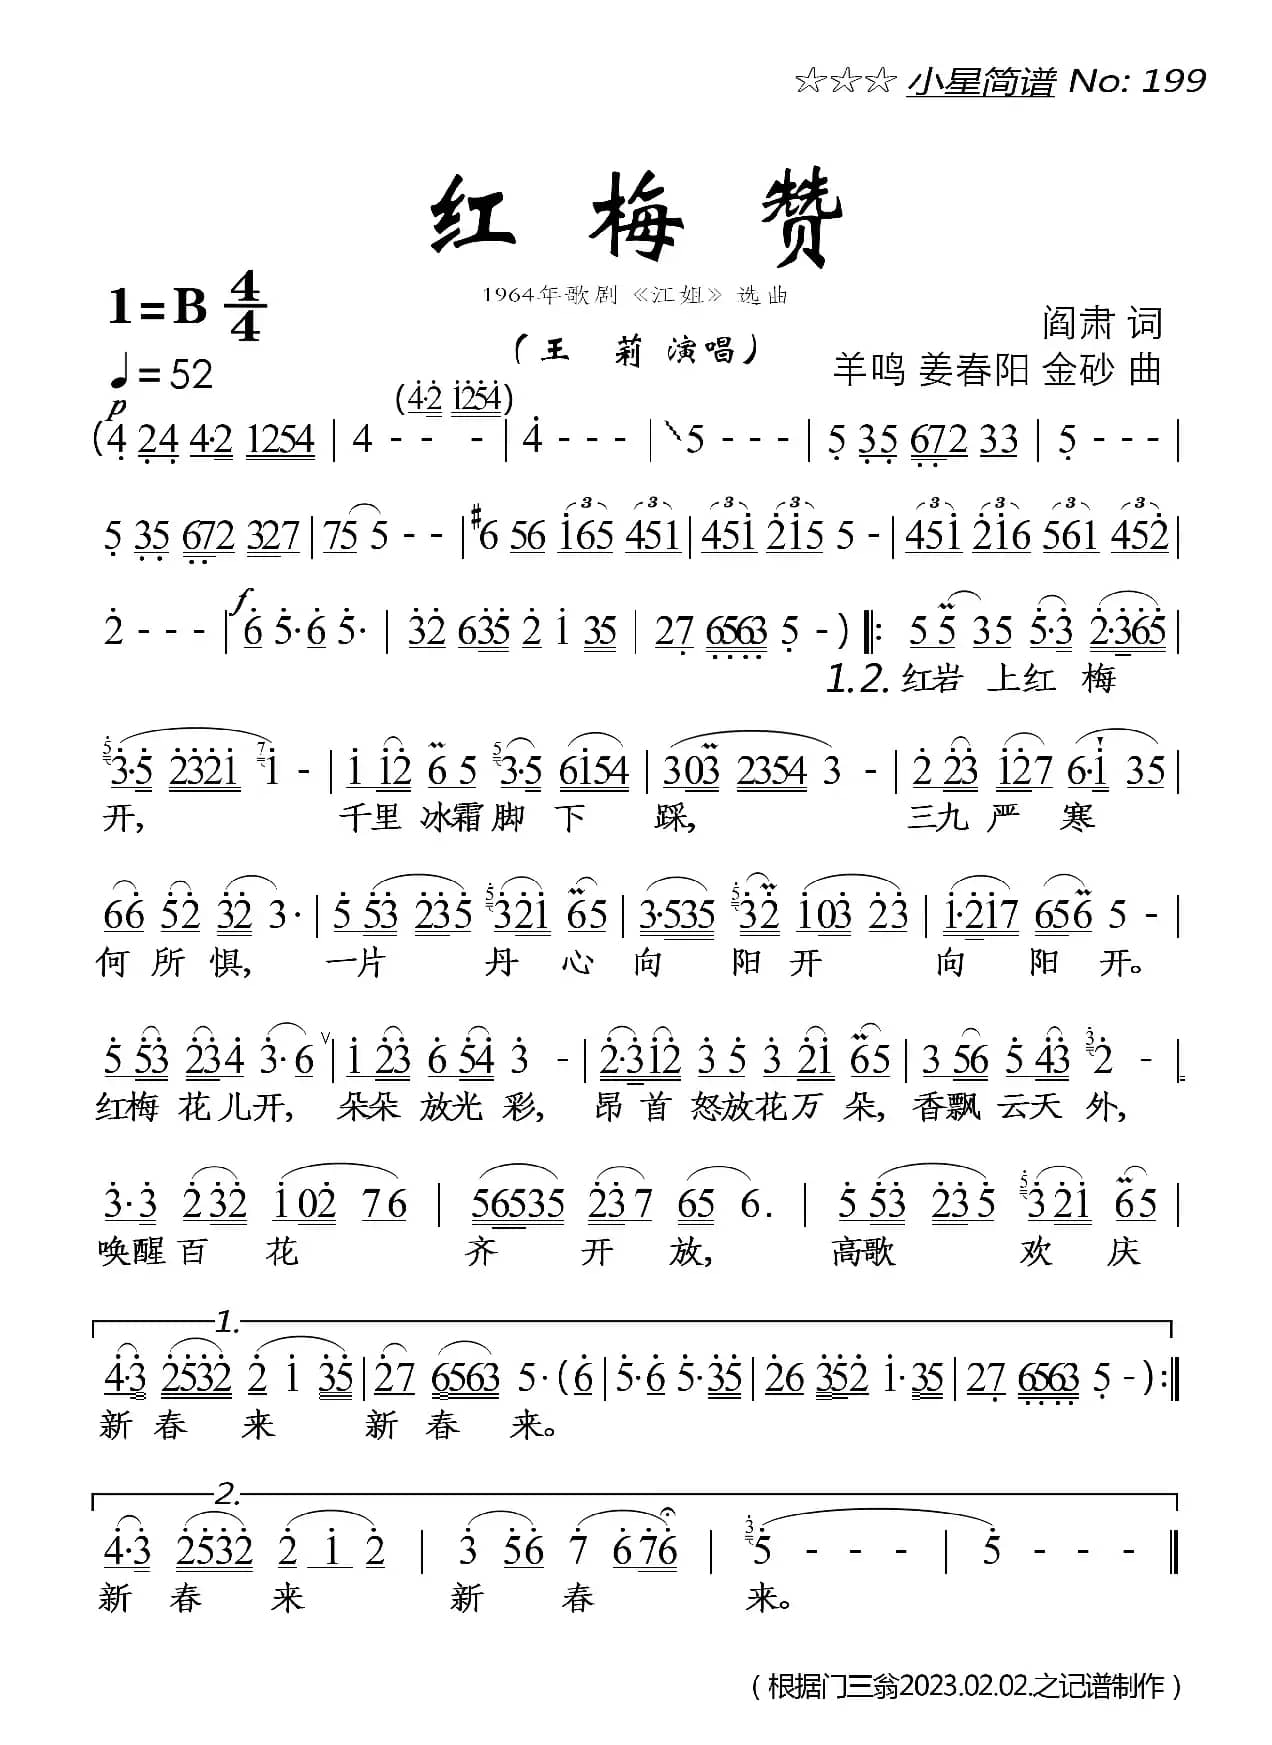 ☆☆☆ 小星简谱 No: 199
红 梅 赞
1964年歌剧《江姐》选曲
1=B 4/4
阎肃 词
（王 莉 演唱）
羊鸣 姜春阳 金砂 曲
♩=52
p
(4·2 1254)
(4 24 4·2 1254 | 4 - - - | 4 - - - | 5 - - - | 5 35 672 33 | 5 - - - |
5 35 672 327 | 75 5 - - | #6 56 165 451 | 451 215 5 - | 451 216 561 452 |
f
2 - - - | 6 5·6 5· | 32 635 2 1 35 | 27 6563 5 - ) ‖: 5 5 35 5·3 2·365 |
1.2. 红岩 上红 梅
3·5 2321 1 - | 1 12 6 5 3·5 6154 | 303 2354 3 - | 2 23 127 6·1 35 |
开, 千里 冰霜 脚 下 踩, 三九 严 寒
66 52 32 3· | 5 53 235 321 65 | 3·535 32 103 23 | 1·217 656 5 - |
何 所 惧, 一片 丹 心 向 阳 开 向 阳 开。
5 53 234 3· 6 ∨ | 1 23 6 54 3 - | 2·312 3 5 3 21 65 | 3 56 5 43 2 - |
红梅 花 儿 开, 朵朵 放光 彩, 昂 首 怒放花 万 朵, 香飘 云天 外,
3· 3 2 32 1 02 7 6 | 56535 23 7 65 6. | 5 53 23 5 3 21 65 |
唤醒 百 花 齐 开 放, 高歌 欢 庆
1.
4·3 2532 2 1 35 | 27 6563 5· (6 | 5·6 5·35 | 26 352 1·35 | 27 6563 5 - ) :‖
新 春 来 新 春 来。
2.
4·3 2532 2 1 2 | 3 56 7 6 76 | 5 - - - | 5 - - - ‖
新 春 来 新 春 来。
（根据门三翁2023.02.02.之记谱制作）